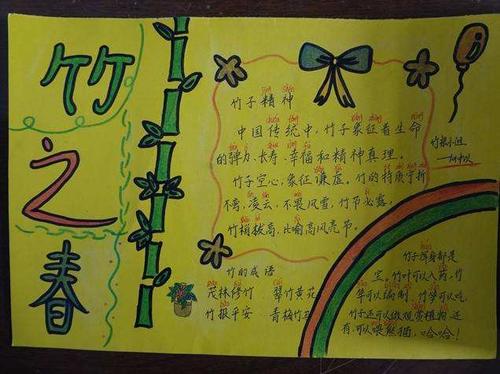 竹
之
春
竹子精神
中国传统中，竹子象征着生命
的弹力、长寿、幸福和精神真理。
竹子空心，象征谦虚。竹的特质弯折
不离，凌云，不畏风雪，竹节必露。
竹梢拔高，比喻高风亮节。
竹的成语
茂林修竹 翠竹黄花
竹报平安 青梅竹马
竹根小组
竹子浑身都是
宝。竹叶可以入药，竹
可以编制，竹笋可以吃
竹子还可以做观赏植物，还
有，可以喂熊猫，哈哈！